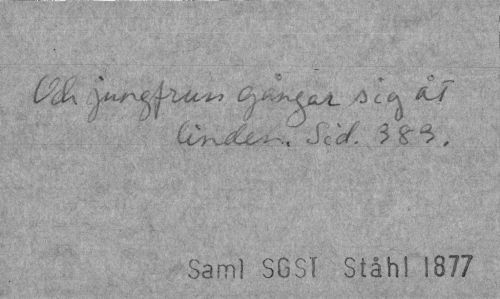 Och jungfrun gångar sig åt
linden. Sid. 383.
Saml SGSI Ståhl 1877